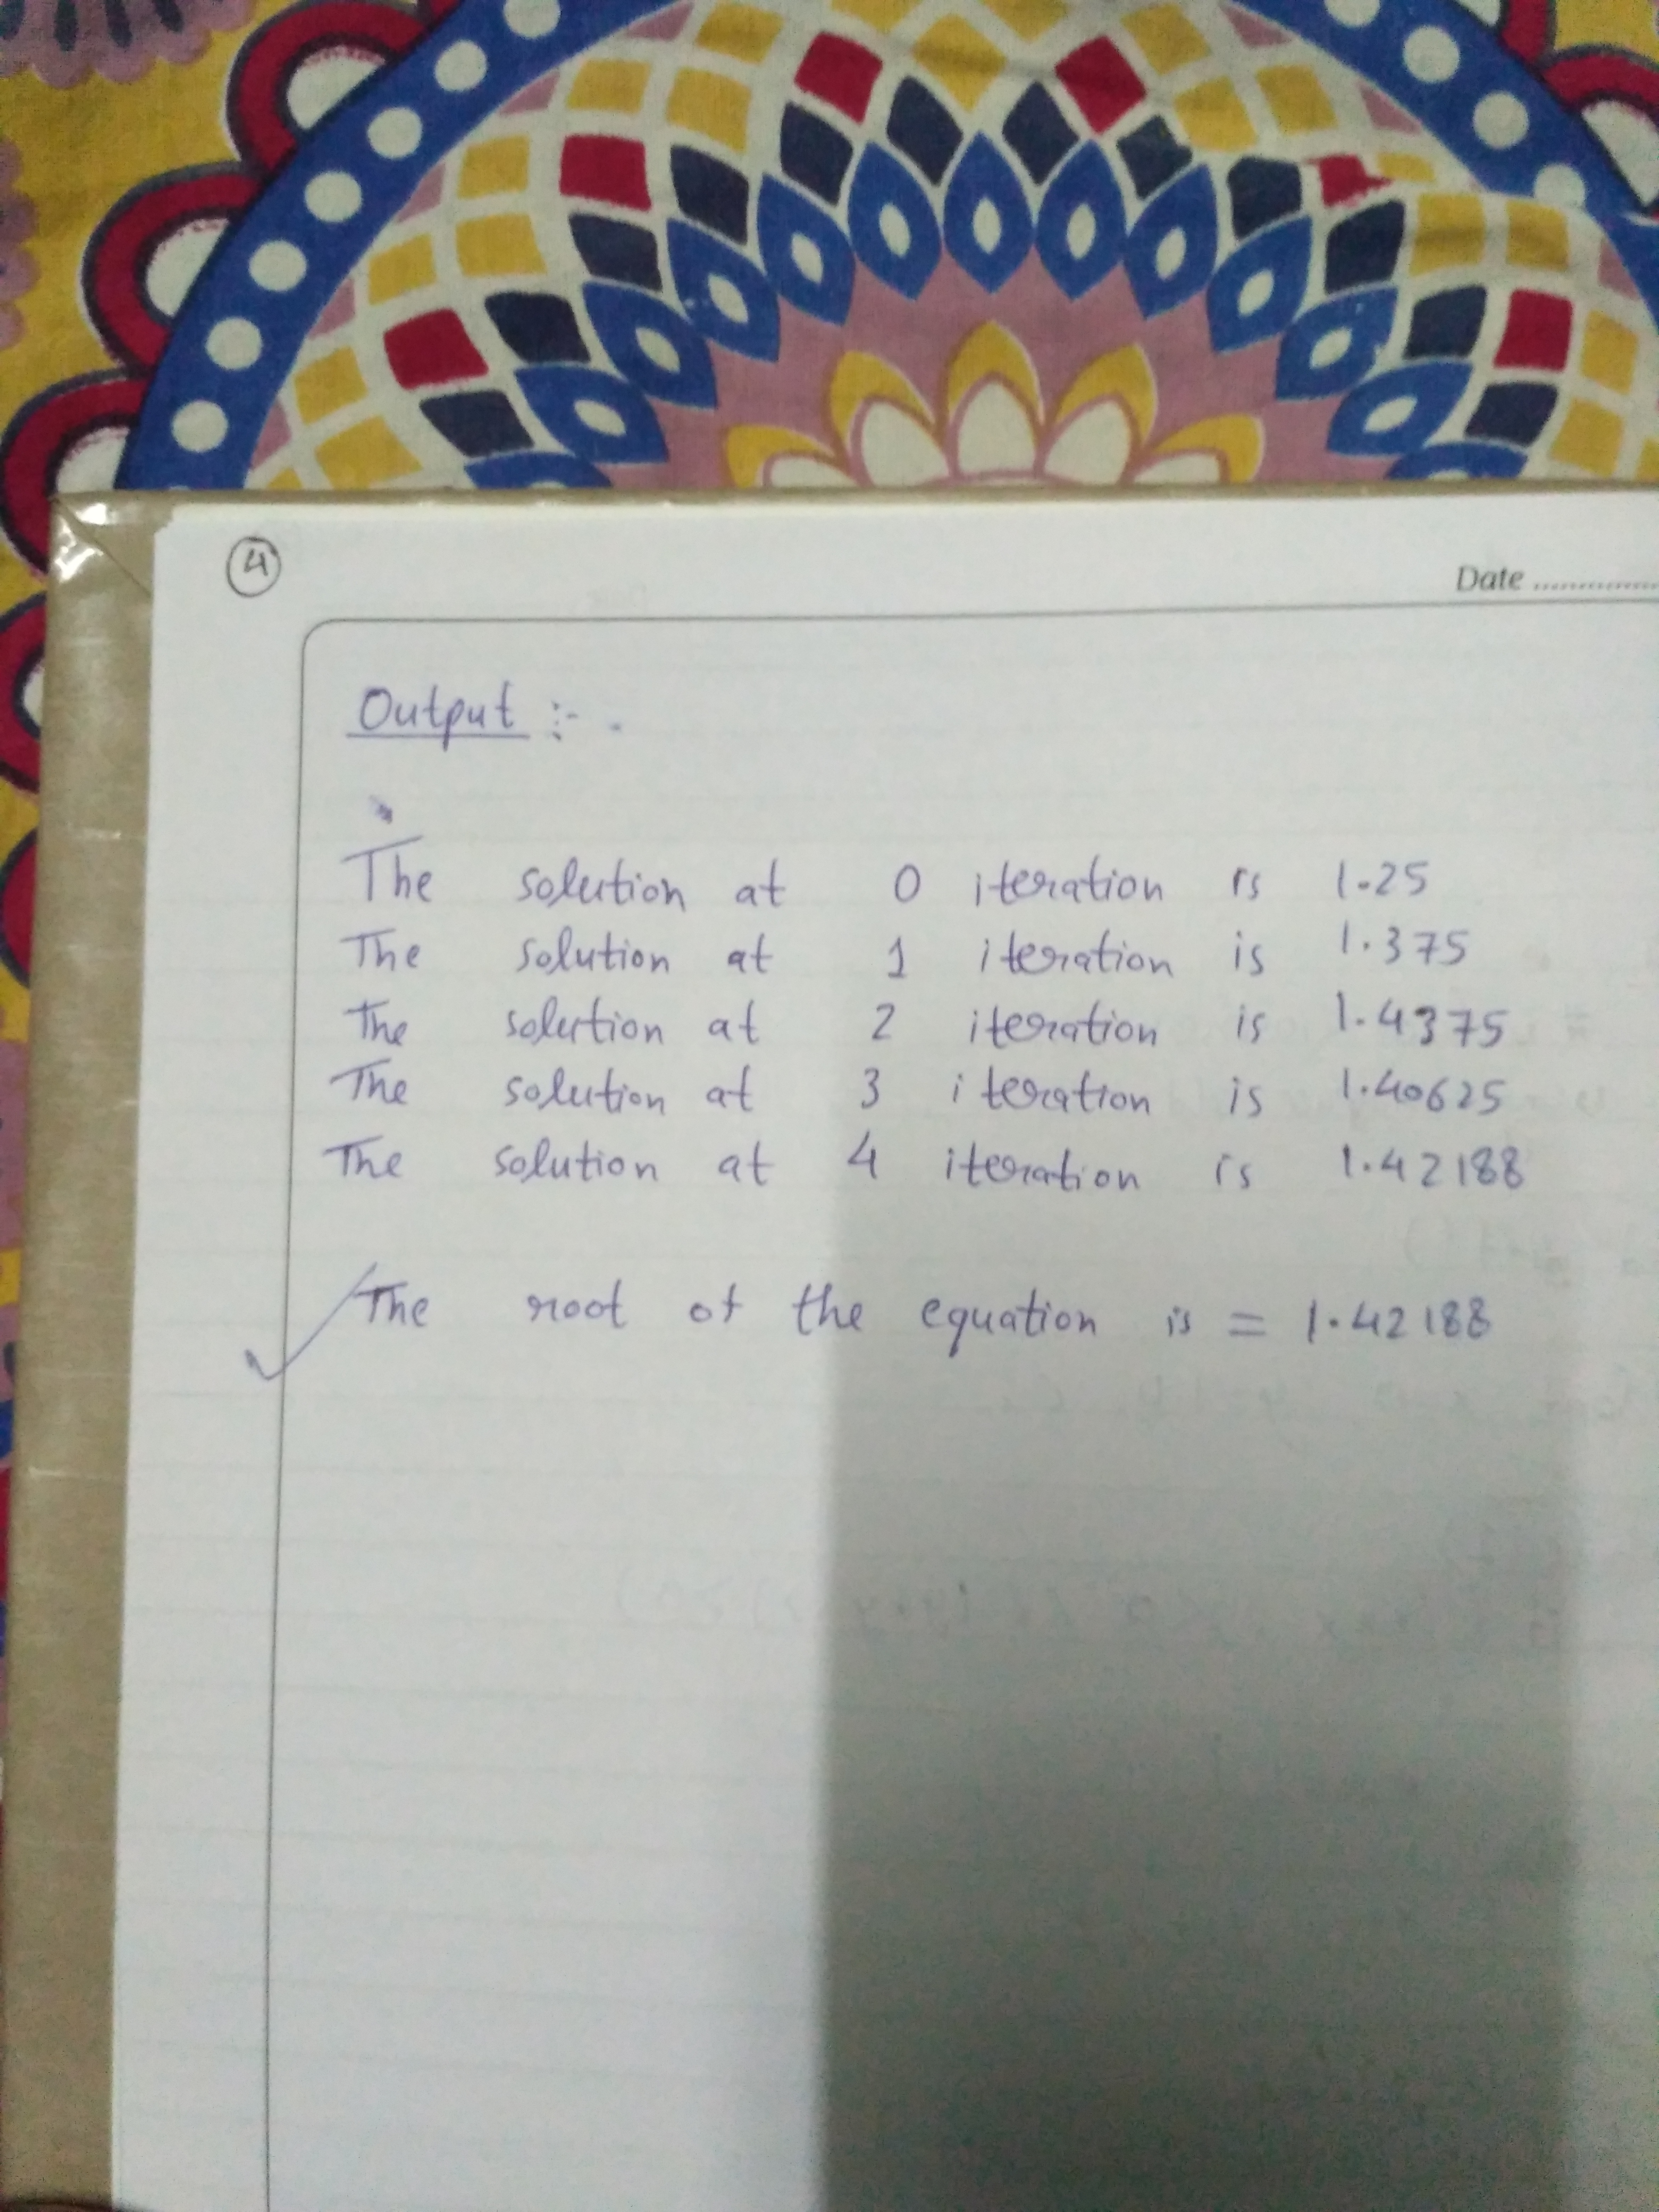 4
Date ..............
Output :-
The solution at 0 iteration is 1.25
The solution at 1 iteration is 1.375
The solution at 2 iteration is 1.4375
The solution at 3 iteration is 1.40625
The solution at 4 iteration is 1.42188
The root of the equation is = 1.42188